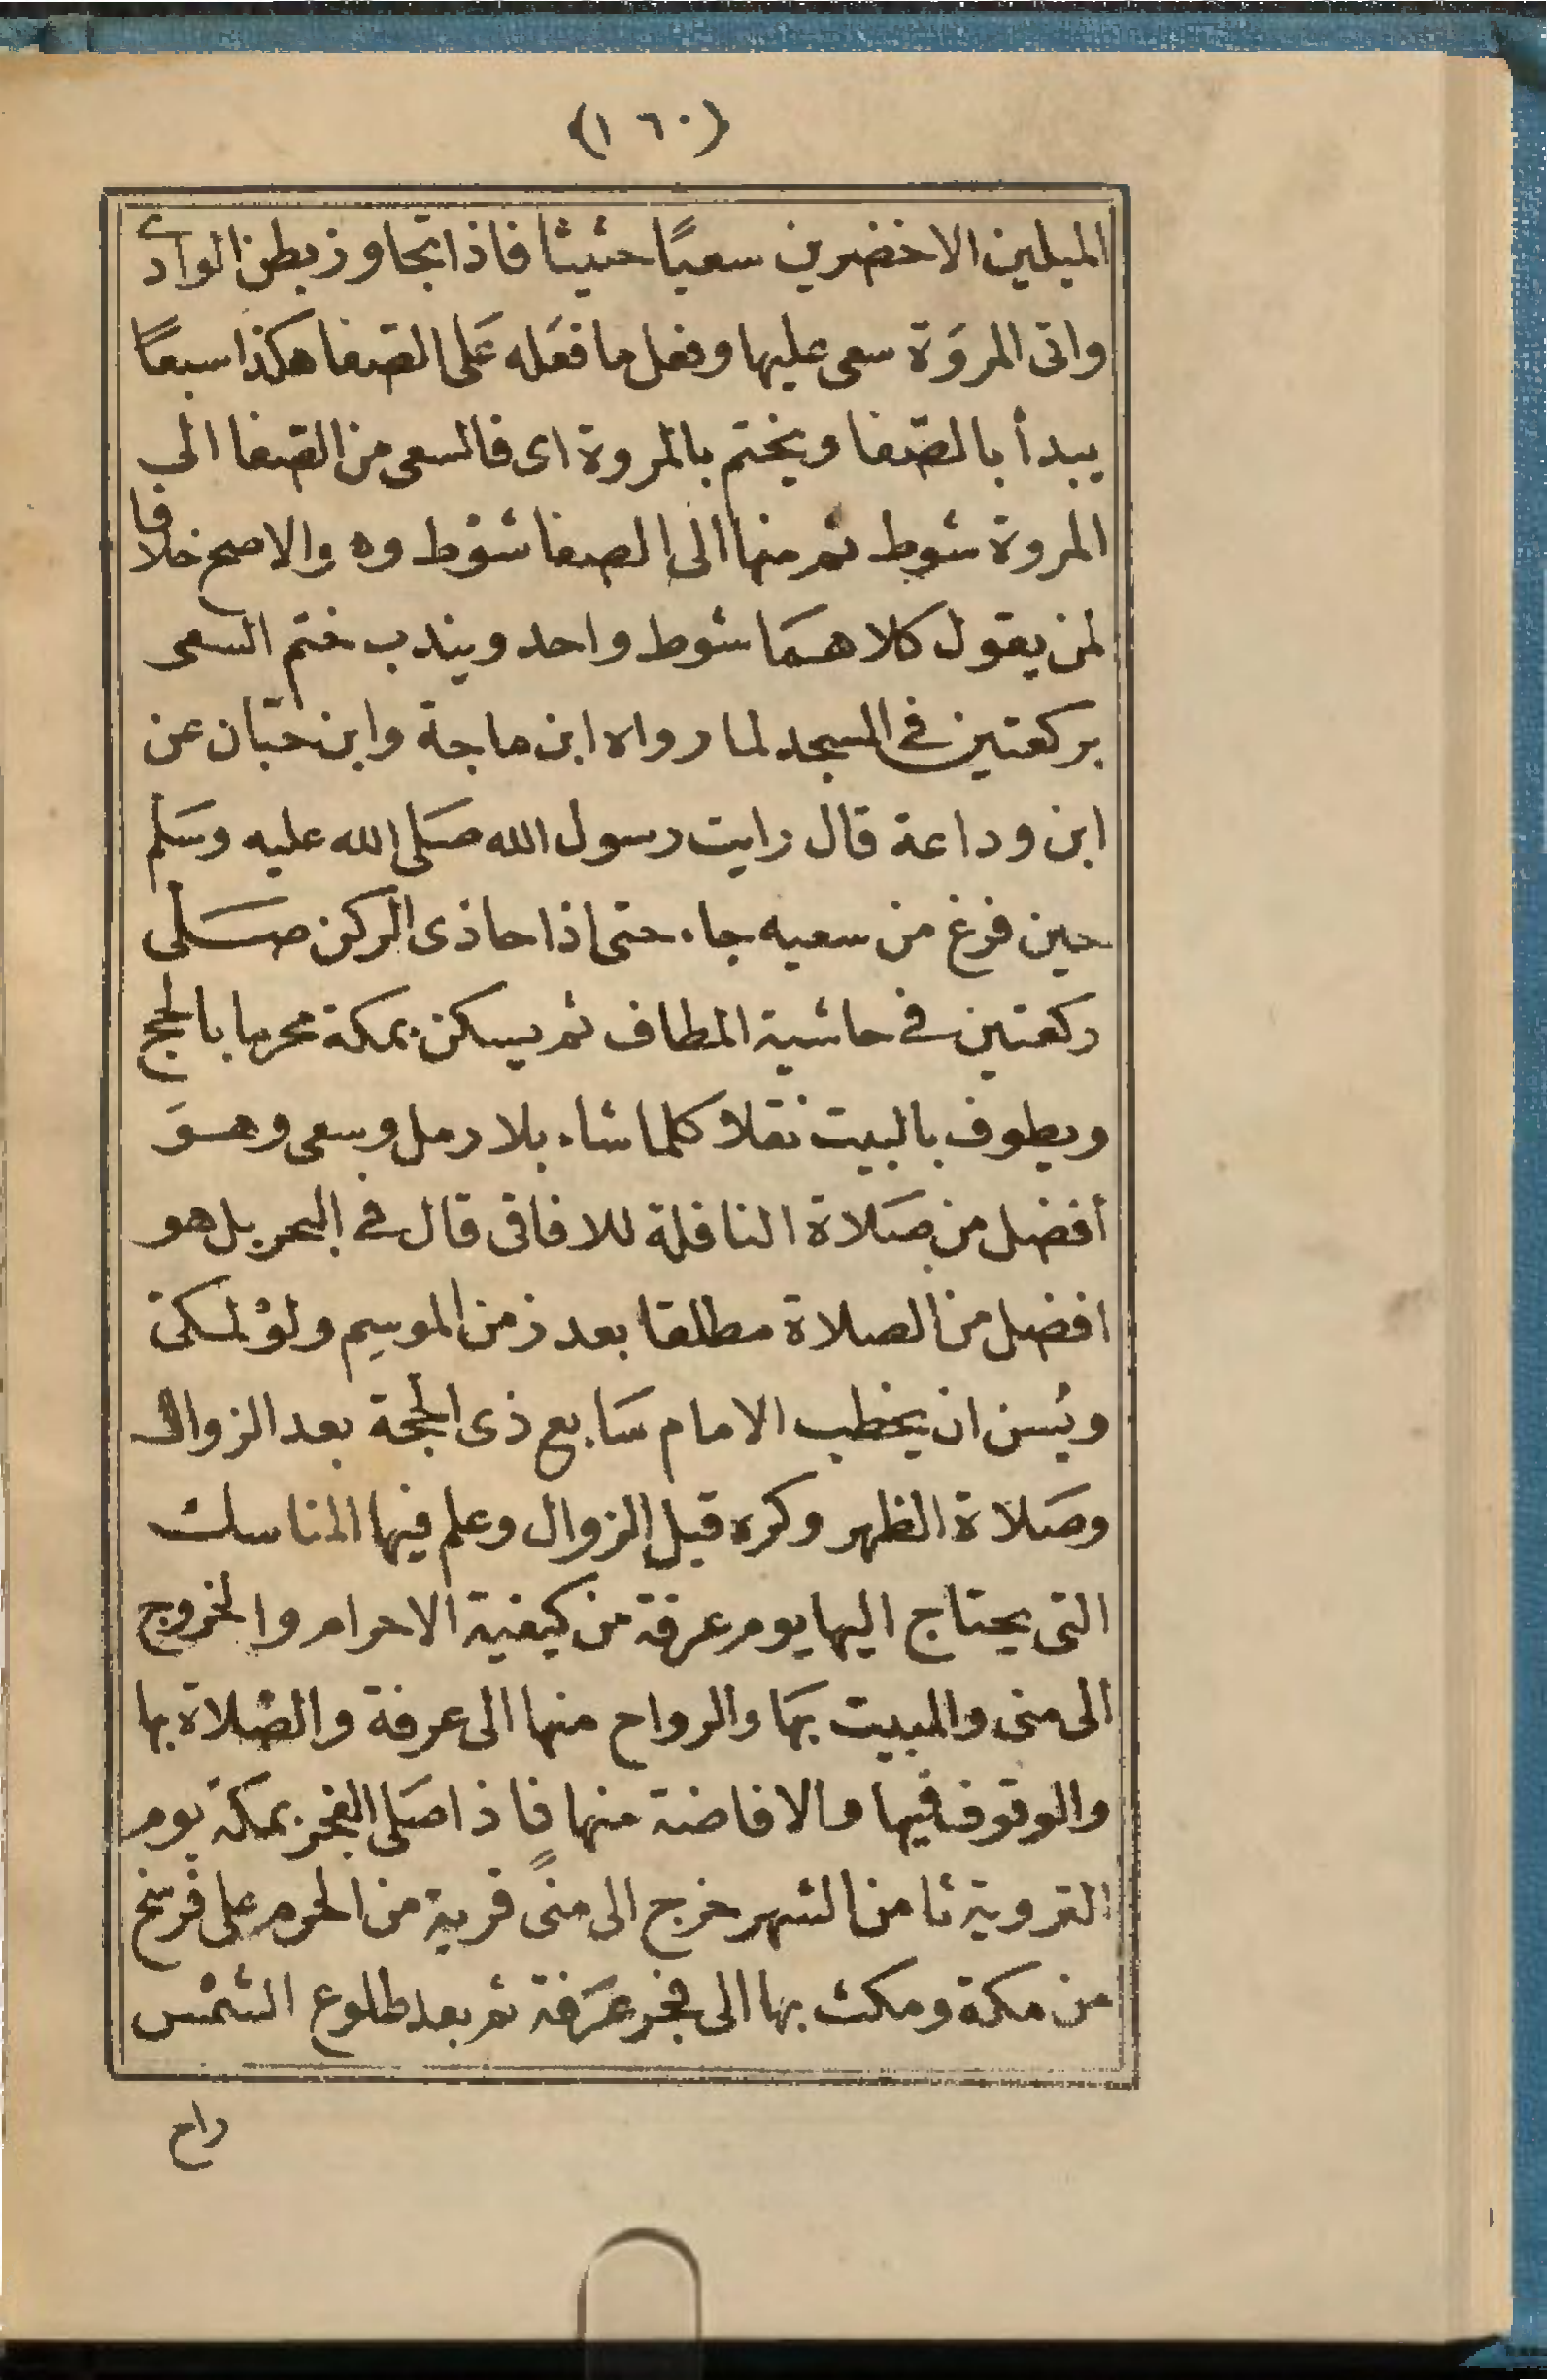 (١٦٠)
الميلين الاخضرين سعيًا حثيثا فاذا تجاوز بطن الوادى
واتى المروَة سعى عليها وفعل ما فعَله عَلى الصفا هكذا سبعًا
يبدأ بالصّفا ويختم بالمروة اى فالسعى من الصفا الى
المروة شوط ثم منها الى الصفا شوط وه والاصح خلافا
لمن يقول كلاهمَا شوط واحد ويندب ختم السعى
بركعتين فى المسجد لما رواه ابن ماجة وابن حبّان عن
ابن وداعة قال رايت رسول الله صَلى الله عليه وسَلم
حين فرغ من سعيه جاء حتى اذا حاذى الركن صَلى
ركعتين فى حاشية المطاف ثم يسكن بمكة محرما بالحج
ويطوف بالبيت نفلا كلما شاء بلا رمل وسعى وهوَ
أفضل من صَلاة النافلة للافاقى قال فى البحر بل هو
افضل من الصلاة مطلقا بعد زمن الموسِم ولوْ لمكىّ
ويُسن ان يخطب الامام سَابع ذى الحجة بعد الزوال
وصَلاة الظهر وكره قبل الزوال وعلم فيها المناسك
التى يحتاج اليها يوم عرفة من كيفية الاحرام والخروج
الى منى والمبيت بهَا والرواح منها الى عرفة والصّلاة بها
والوقوف فيها والافاضة منها فاذا صَلى الفجر بمكة يوم
التروية ثامن الشهر خرج الى منًى قرية من الحرم على فرسخ
من مكة ومكث بها الى فجر عَرَفة ثم بعد طلوع الشمْس
راح